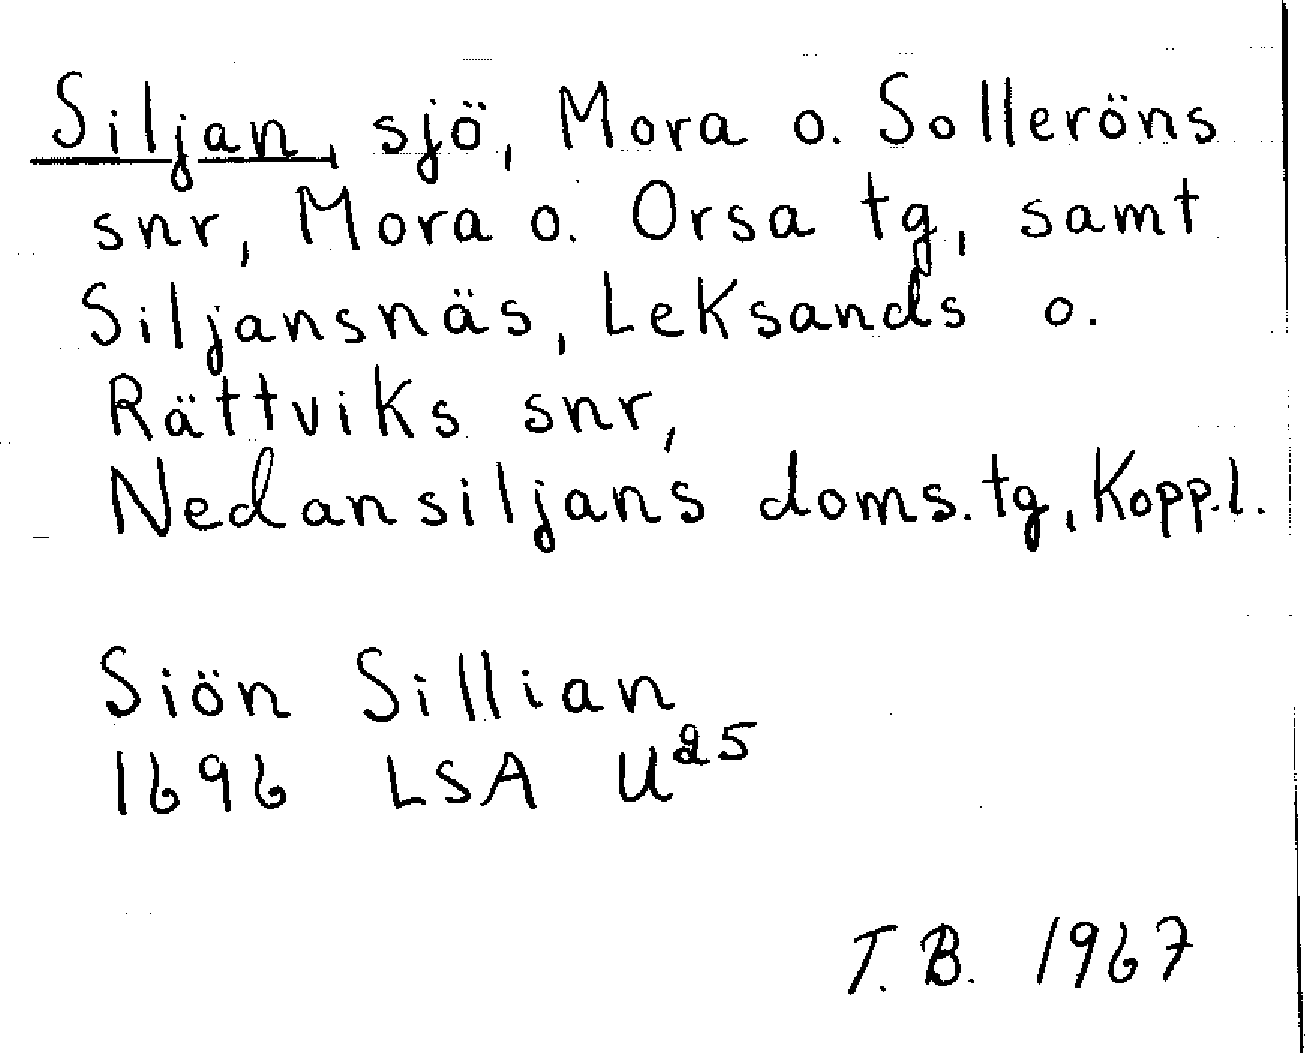 Siljan, sjö, Mora o. Solleröns
snr, Mora o. Orsa tg, samt
Siljansnäs, Leksands o.
Rättviks snr,
Nedansiljans doms. tg, Kopp.l.
Siön Sillian
1696 LSA U25
T. B. 1967